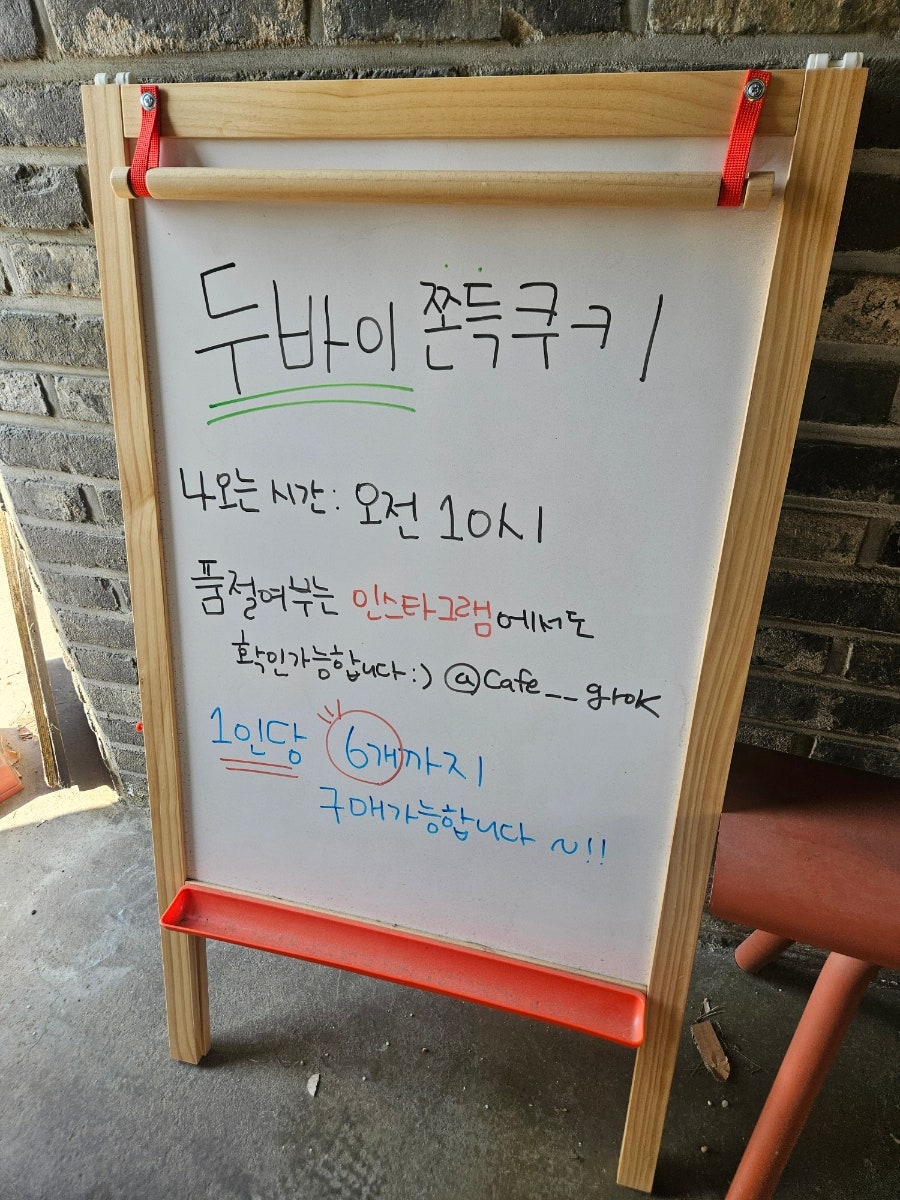 두바이 쫀득쿠키
나오는 시간: 오전 10시
품절여부는 인스타그램에서도
확인가능합니다:) @cafe__grok
1인당 6개까지
구매가능합니다 ~!!